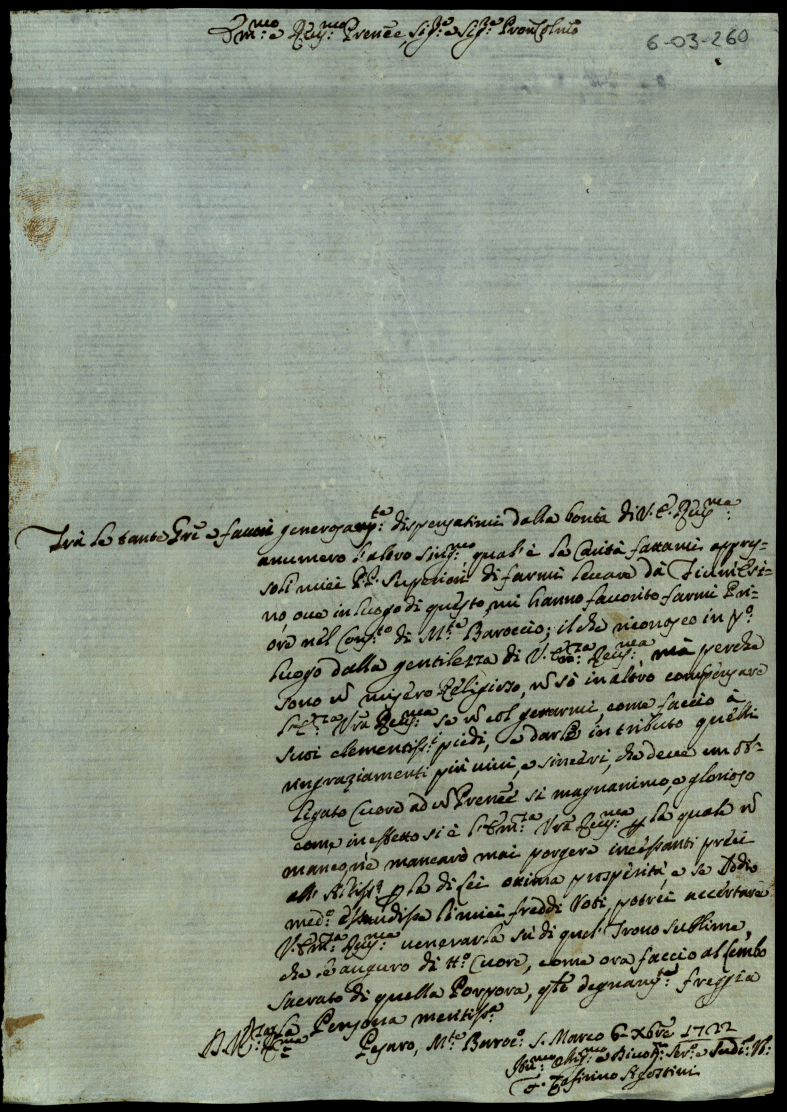 Em.mo e Rev.mo Prenẽe, Sig.re e Sig.re Pron Col.mo
6-03-260
Trà le tante Grẽ e favori generosam.te dispensatimi dalla bontà di V. E. Rev.ma
annumero l'altro sing.mo, qual'è la Carità fattami appres-
so li miei PP. Superiori di farmi levare da
no, ove in luogo di questo, mi hanno favorito farmi Pri-
ore nel Con.to di M.te Baroccio; il che riconosco in p.o
luogo dalla gentilezza di V. Em.za Rev.ma, mà perche
sono ũ misero Religioso, ñ sò in altro compensare
l'E.za Vrã Rev.ma se ñ col gettarmi, come faccio à
suoi clementiss.i piedi, e darle in tributo quelli
ringraziamenti più vivi, e sinceri, che deve un ob-
ligato Cuore ad ũ Prenẽe si magnanimo, e glorioso
come in effetto si è l'Em.za Vrã Rev.ma p la quale ñ
manco, ne mancarò mai porgere incessanti preci
all' Altiss.o p la di Lei ottima prosperità, e se Iddio
med.o esaudisse li miei freddi Voti, potrei accertare
V. Em.za Rev.ma venerarla sù di quel Trono sublime,
che le auguro di tt.o Cuore, come ora faccio al Lembo
sacrato di quella Porpora, degnam.te freggia
la Persona meritiss.a
Pesaro, M.te Baroc.o S. Marco 6 Xbre 1722
Um.mo Obg.mo e Divot.mo Ser.e e Sud.o
F. Agostini